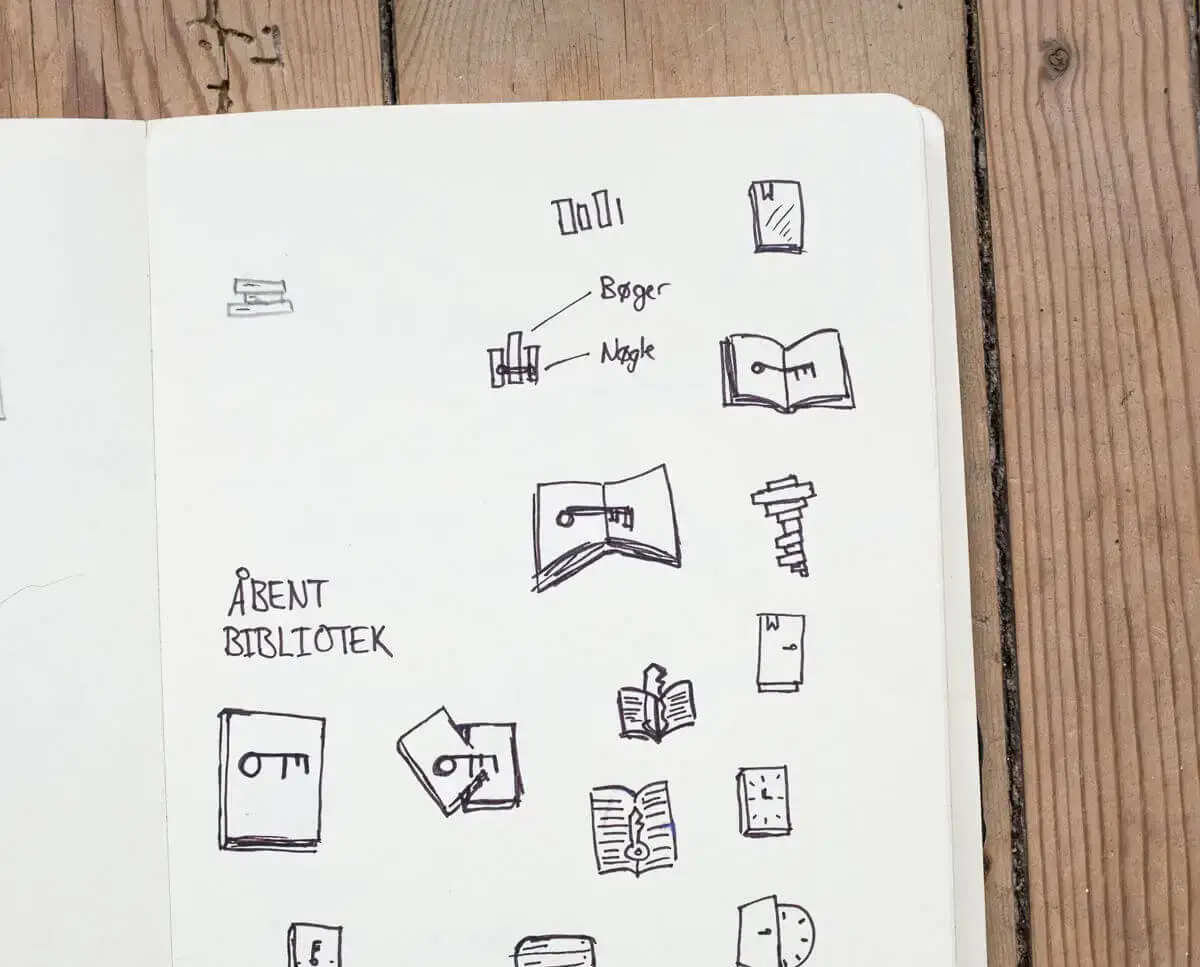 Bøger
Nøgle
ÅBENT
BIBLIOTEK